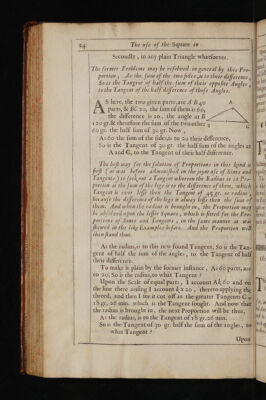 84 The use of the Square in
Secondly, in any plain Triangle whatsoever.
The former Problems may be resolved in general by this Pro-
portion; As the sum of the two sides, is to their difference;
So is the Tangent of half the sum of their opposite Angles,
to the Tangent of the half difference of those Angles.
AS here, the two given parts, are A B 40
parts, & BC 20, the sum of them is 60,
the difference is 20, the angle at B
120 gr. & therefore the sum of the two other is
60 gr. the half sum of 30 gr. Now,
As 60 the sum of the sides, is to 20 their difference,
So is the Tangent of 30 gr. the half sum of the angles at
A and C, to the Tangent of their half difference.
The best way for the solution of Proportions in this kind is
first (as was before admonished in the joint use of Sines and
Tangents) to seek out a Tangent whereon the Radius is in Pro-
portion as the sum of the legs is to the difference of them, which
Tangent is ever less then the Tangent of 45 gr. or radius,
because the difference of the legs is alway less then the sum of
them. And when the radius is brought in, the Proportion may
be absolved upon the lesser Square, which is fitted for the Pro-
portions of Sines and Tangents, in the same manner as was
shewed in the like Examples before. And the Proportion will
then stand thus.
As the radius, is to this new found Tangent, So is the Tan-
gent of half the sum of the angles, to the Tangent of half
their difference.
To make it plain by the former instance, As 60 parts, are
to 20, So is the radius, to what Tangent?
Upon the Scale of equal parts, I account A 60 and on
the line there I account 20, thereto applying the
threed, and then I see it cut off as the greater Tangents
18 gr. 26 min. which is the Tangent sought. And now that
the radius is brought in, the next Proportion will be thus,
As the radius, is to the Tangent of 18 gr. 26 min.
So is the Tangent of 30 gr. half the sum of the angles, to
what Tangent?
Upon